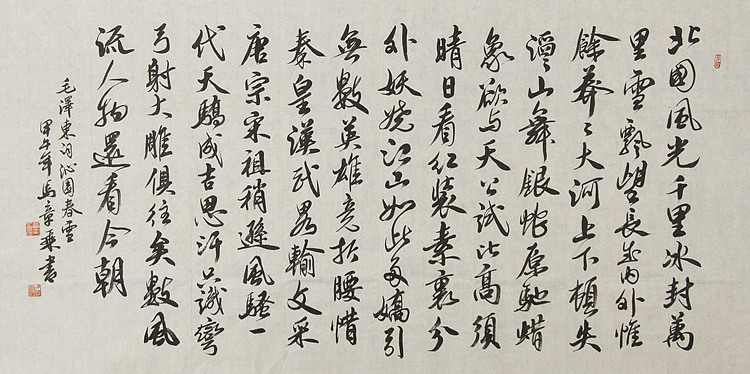 北國風光千里冰封萬
里雪飄望長城内外惟
餘莽〻大河上下頓失
滔〻山舞銀蛇原馳蜡
象欲与天公試比高須
晴日看红装素裹分
外妖娆江山如此多嬌引
無數英雄竞折腰惜
秦皇漢武略輸文采
唐宗宋祖稍遜風騷一
代天驕成吉思汗只識彎
弓射大雕俱往矣數風
流人物還看今朝
毛澤東词沁園春雪
甲午年馬章乘書